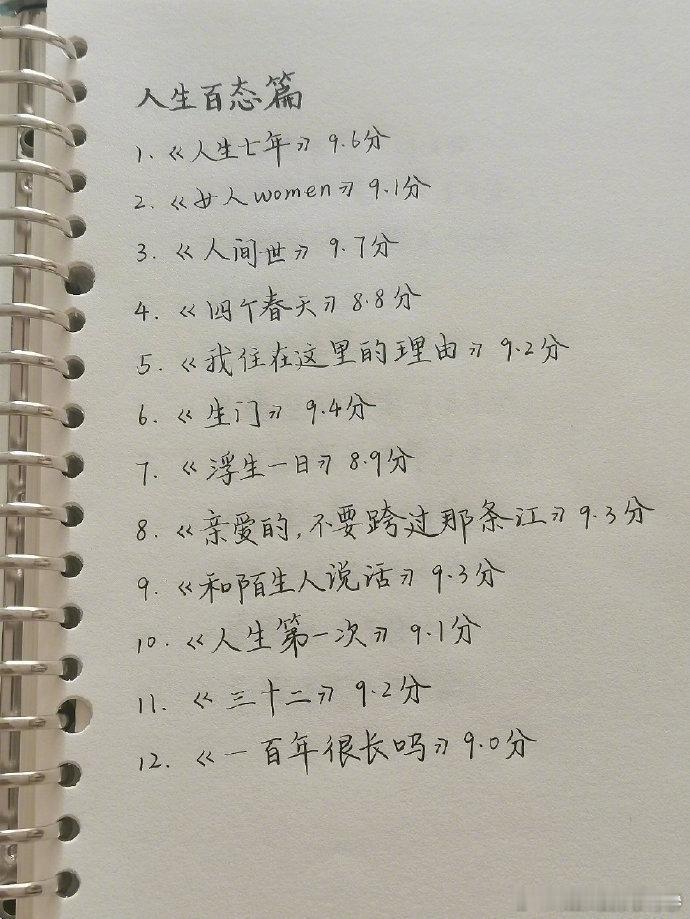 人生百态篇
1.《人生七年》9.6分
2.《女人women》9.1分
3.《人间世》9.7分
4.《四个春天》8.8分
5.《我住在这里的理由》9.2分
6.《生门》9.4分
7.《浮生一日》8.9分
8.《亲爱的,不要跨过那条江》9.3分
9.《和陌生人说话》9.3分
10.《人生第一次》9.1分
11.《三十二》9.2分
12.《一百年很长吗》9.0分